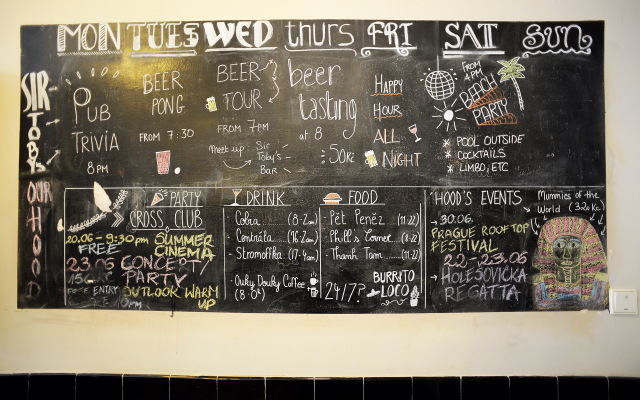 MON TUES WED thurs FRI SAT SUN
SIR TOBYS OUR HOOD
PUB
TRIVIA
8PM
BEER
PONG
FROM 7:30
BEER
TOUR
FROM 7PM
Meet up → Sir
Toby's
Bar
beer
tasting
at 8
50Kč
HAPPY
HOUR
ALL
NIGHT
FROM
4PM
BEACH
PARTY
* POOL OUTSIDE
* COCKTAILS
* LIMBO, ETC
PARTY
CROSS CLUB
20.06 - 9:30pm SUMMER
FREE CINEMA
23.06 CONCERT
PARTY
FREE ENTRY OUTLOOK WARM
UP
DRINK
- Cobra (8-2am)
- Kontrast (16-2am)
- Stromoffka (17-4am)
- Ouky Douky Coffee
(8-0)
FOOD
- Pět Peněz (11-22)
- Phill's Corner (8-22)
- Thanh Tam (11-22)
24/7? BURRITO
LOCO
HOOD'S EVENTS
→ 30.06.
PRAGUE ROOFTOP
FESTIVAL
22.-23.06
→ HOLEŠOVIČKA
REGATTA
Mummies of the
World (320Kč)